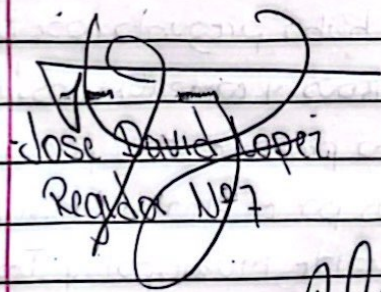 Jose David Lopez
Regidor Nº 7